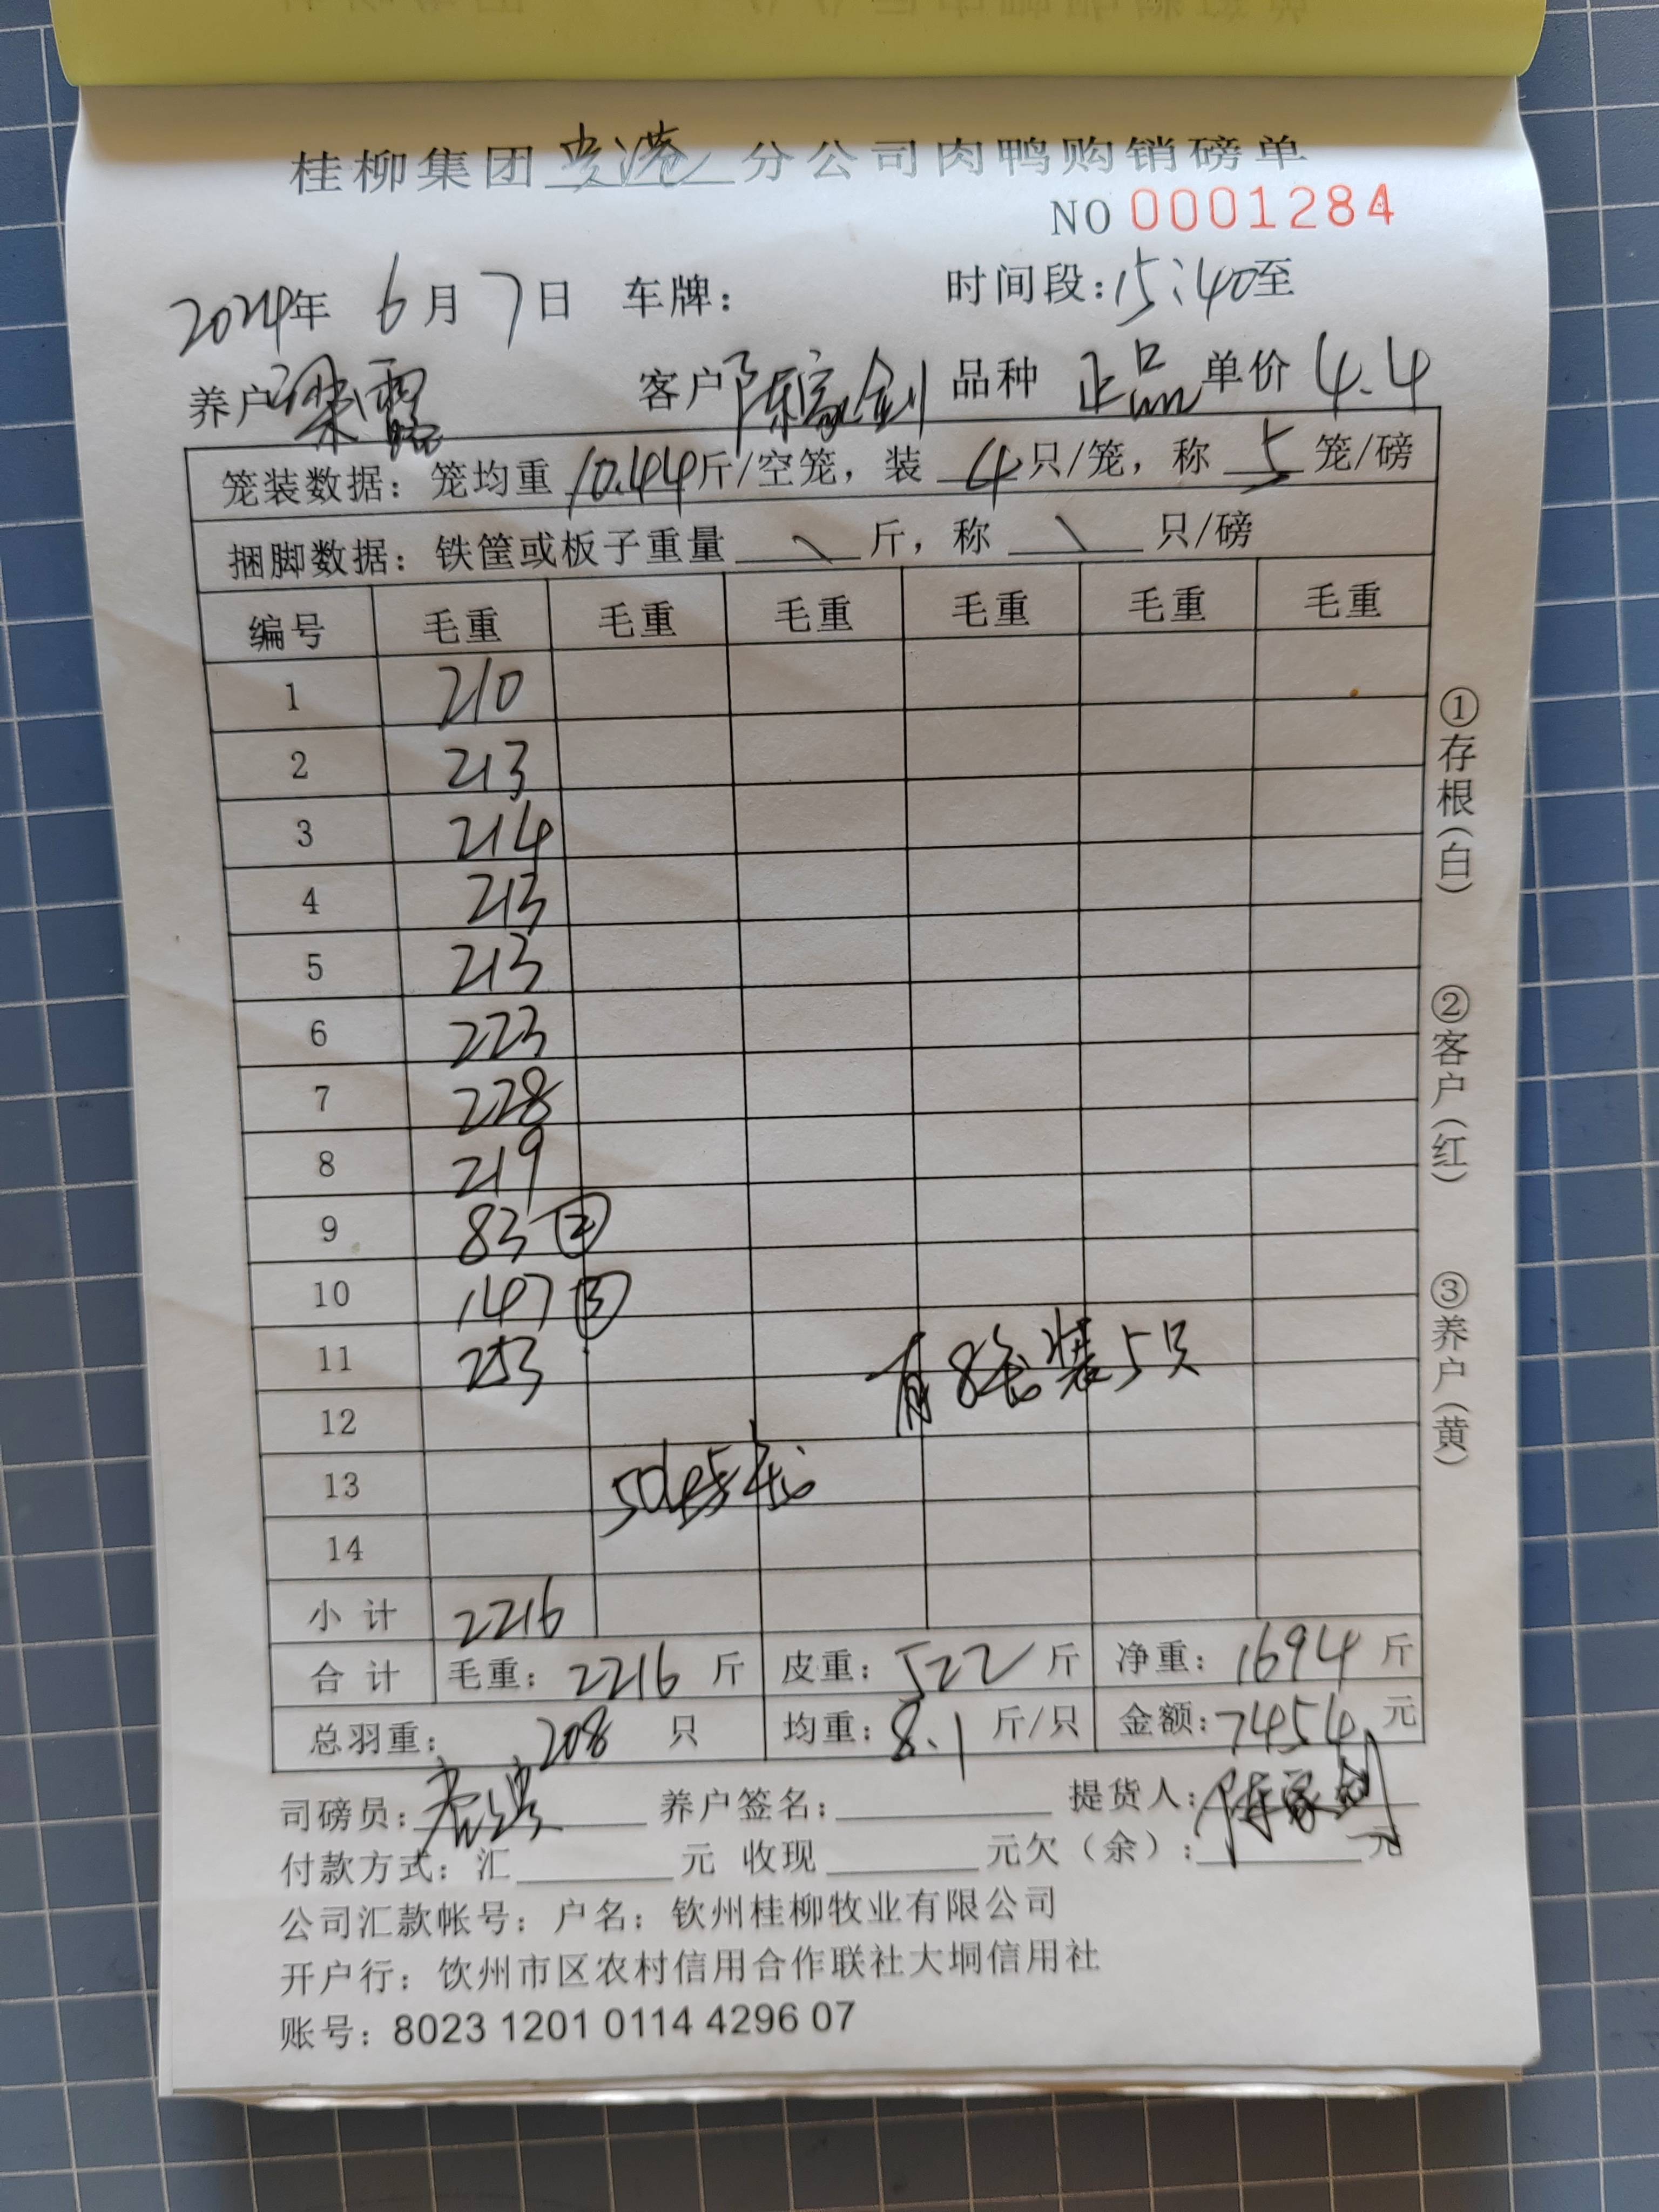 桂柳集团贵港分公司肉鸭购销磅单
NO 0001284
2024年 6月 7日 车牌： 时间段：15:40至
养户梁露 客户陈家剑 品种 正品 单价 4.4
笼装数据：笼均重 10.44斤/空笼，装 4只/笼，称 5笼/磅
捆脚数据：铁筐或板子重量 \ 斤，称 \ 只/磅
编号 毛重 毛重 毛重 毛重 毛重 毛重
1 210
2 213
3 214
4 213
5 213
6 223
7 228
8 219
9 83 ②
10 147 ③
11 253
有8笼装5只
12
13 50
14
小计 2216
合计 毛重：2216 斤 皮重：522 斤 净重：1694 斤
总羽重： 208 只 均重：8.1 斤/只 金额：7454 元
司磅员： 养户签名： 提货人：陈家剑
付款方式：汇 元 收现 元欠（余）： 元
公司汇款帐号：户名：钦州桂柳牧业有限公司
开户行：饮州市区农村信用合作联社大垌信用社
账号：8023 1201 0114 4296 07
①存根（白）
②客户（红）
③养户（黄）